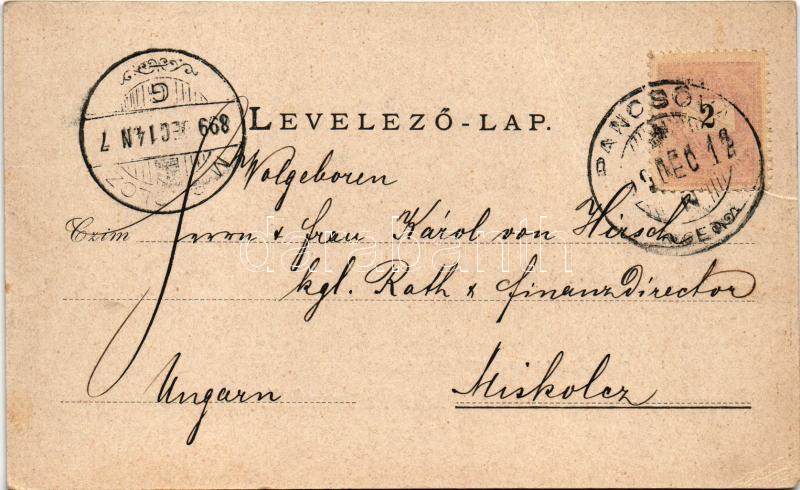 LEVELEZŐ-LAP.
MISKOLCZ
899 DEC 14 N 7
G
PANCSOVA
DEC 12
2
Wolgeboren
Czim Herrn & Frau Károl von Hirsch
kgl. Rath & Finanzdirector
Ungarn Miskolcz
darabanth